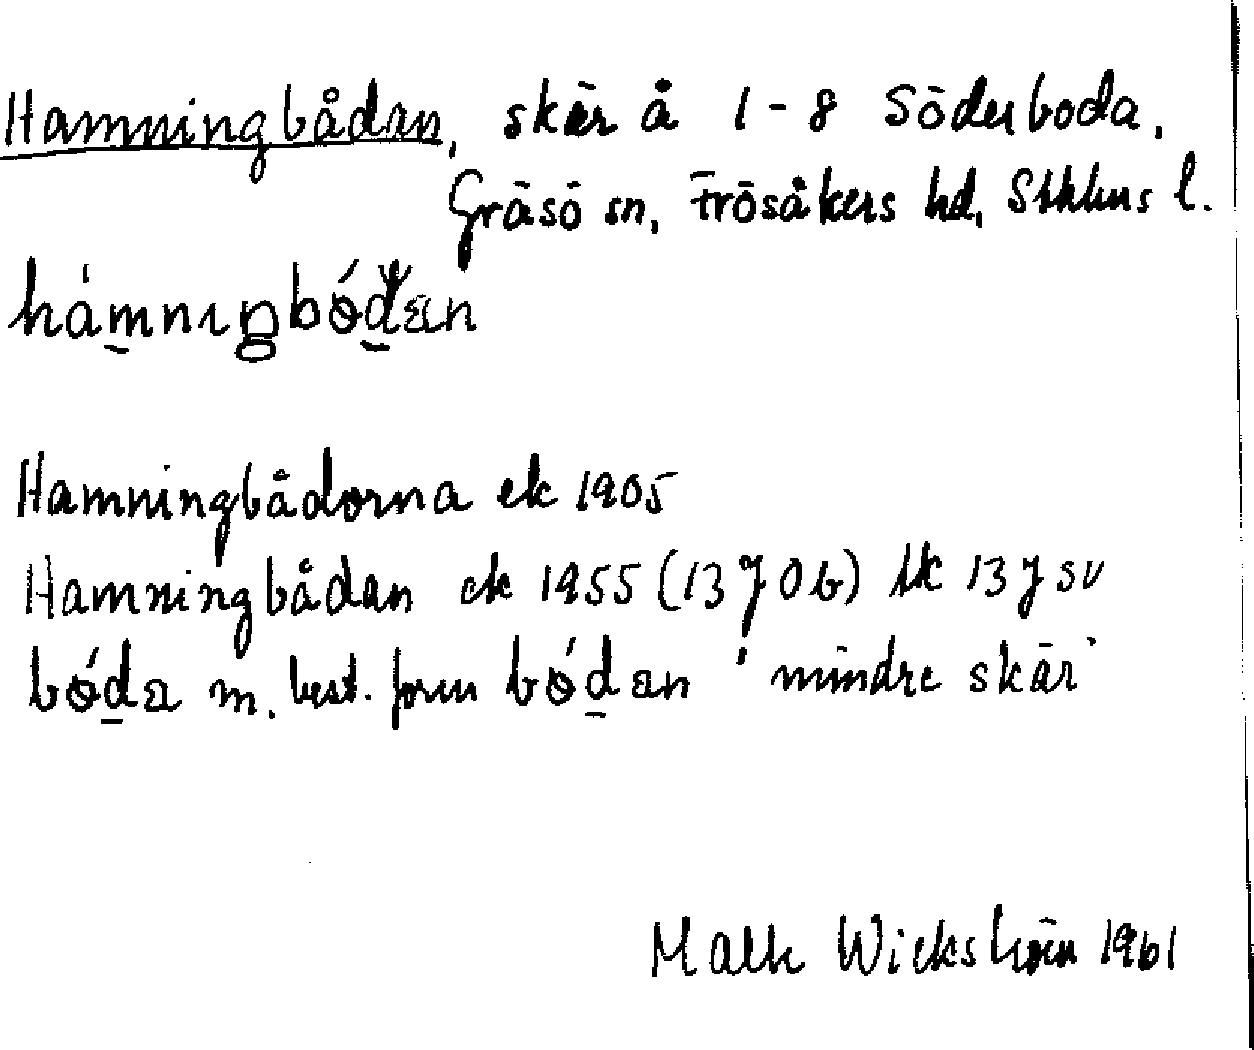 Hamningbådan, skär å 1-8 Söderboda,
Gräsö sn, Frösåkers hd, Sthlms l.
Hamningbådorna ek 1905
Hamningbådan ek 1955 (13 J 0b) tk 13 J SV
m. best. form 'mindre skär'
Wickström 1961